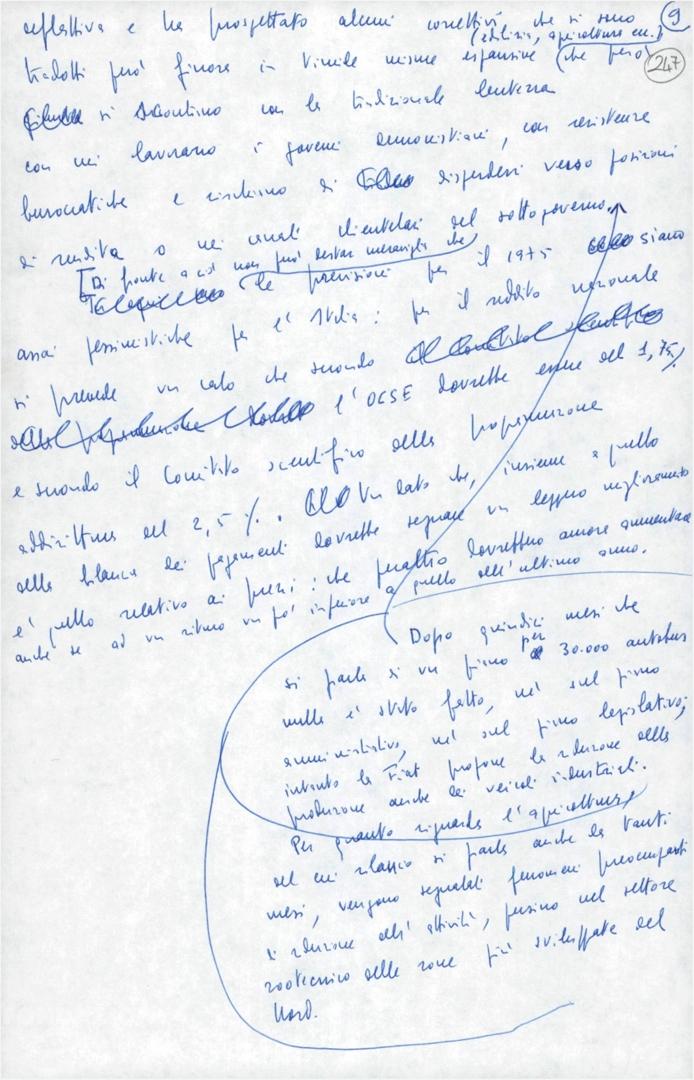 9
247
deflattiva e ha prospettato alcuni correttivi che si sono
(edilizia, agricoltura ecc.)
tradotti però finora in timide misure espansive (che però
si scontrano con la tradizionale lentezza
con cui lavorano i governi democristiani, con resistenze
burocratiche e rischiano di disperdersi verso posizioni
di rendita o nei canali clientelari del sottogoverno.
[Di fronte a ciò non può destar meraviglia che
le previsioni per il 1975 siano
assai pessimistiche per l'Italia: per il reddito nazionale
si prevede un calo che secondo
l'OCSE dovrebbe essere del 1,75%
e secondo il Comitato scientifico della programmazione
addirittura del 2,5%. Un dato che, insieme a quello
della bilancia dei pagamenti dovrebbe segnare un leggero miglioramento
è quello relativo ai prezzi: che peraltro dovrebbero ancora aumentare
anche se ad un ritmo un po' inferiore a quello dell'ultimo anno.
Dopo quindici mesi che
si parla di un piano per 30.000 autobus
nulla è stato fatto, né sul piano
amministrativo, né sul piano legislativo;
intanto la Fiat propone la riduzione della
produzione anche dei veicoli industriali.
Per quanto riguarda l'agricoltura,
del cui rilancio si parla anche da tanti
mesi, vengono segnalati fenomeni preoccupanti
di riduzione dell'attività, persino nel settore
zootecnico delle zone più sviluppate del
Nord.